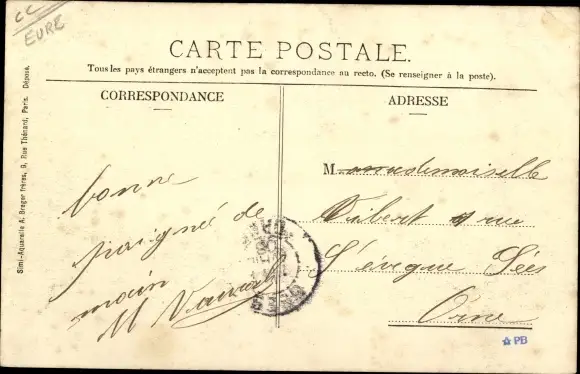 CC
EURE
CARTE POSTALE.
Tous les pays étrangers n'acceptent pas la correspondance au recto. (Se renseigner à la poste).
CORRESPONDANCE
ADRESSE
Simi-Aquarelle A. Breger Frères, 9, Rue Thénard, Paris. Déposé.
bonne
poignée de
main
M
Mademoiselle
rue
l'évêque Sées
Orne
PB